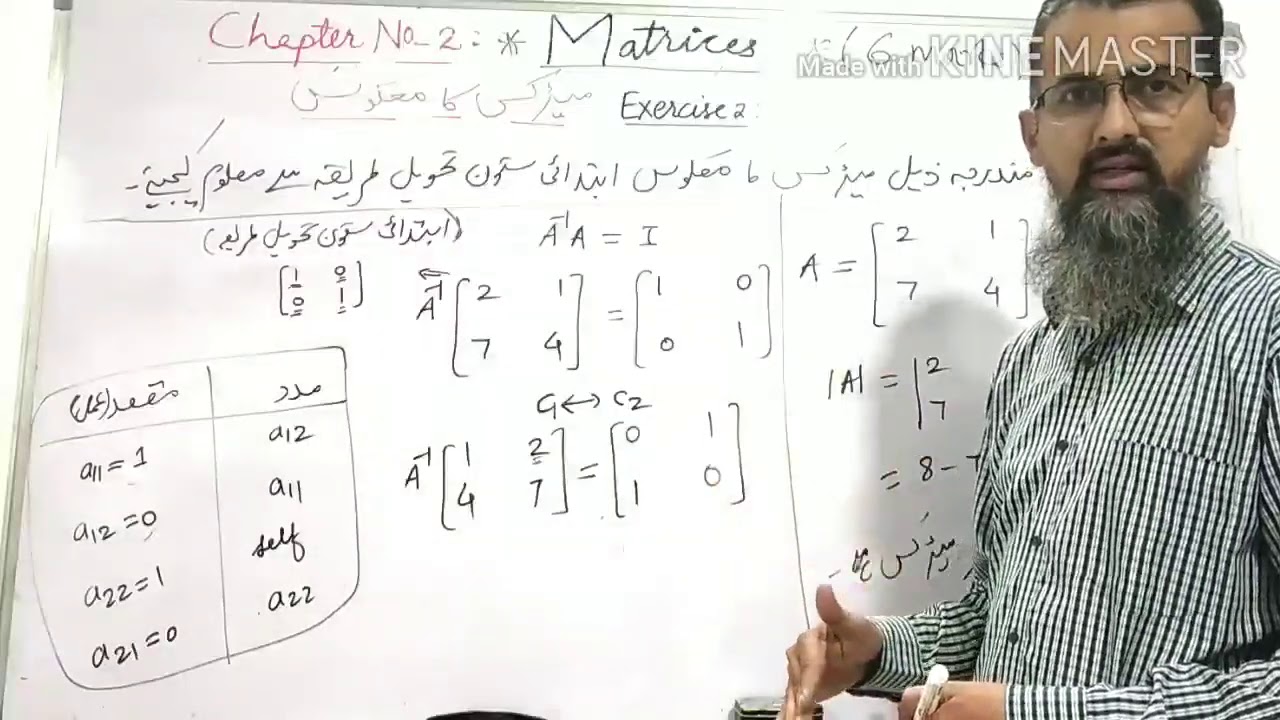 Chapter No-2: * Matrices
Made with KINEMASTER
میٹرکس کا معکوس Exercise 2:
مندرجہ ذیل میٹرکس کا معکوس ابتدائی ستون تحویل طریقہ سے معلوم کیجئے۔
(ابتدائی ستون تحویل طریقہ)
A⁻¹A = I
[1 0
0 1]
A⁻¹ [2 1
7 4] = [1 0
0 1]
C1 ↔ C2
A⁻¹ [1 2
4 7] = [0 1
1 0]
A = [2 1
7 4]
|A| = |2
7
= 8 - 7
میٹرکس
مقصد (عمل) مدد
a11 = 1 a12
a12 = 0 a11
a22 = 1 self
a21 = 0 a22